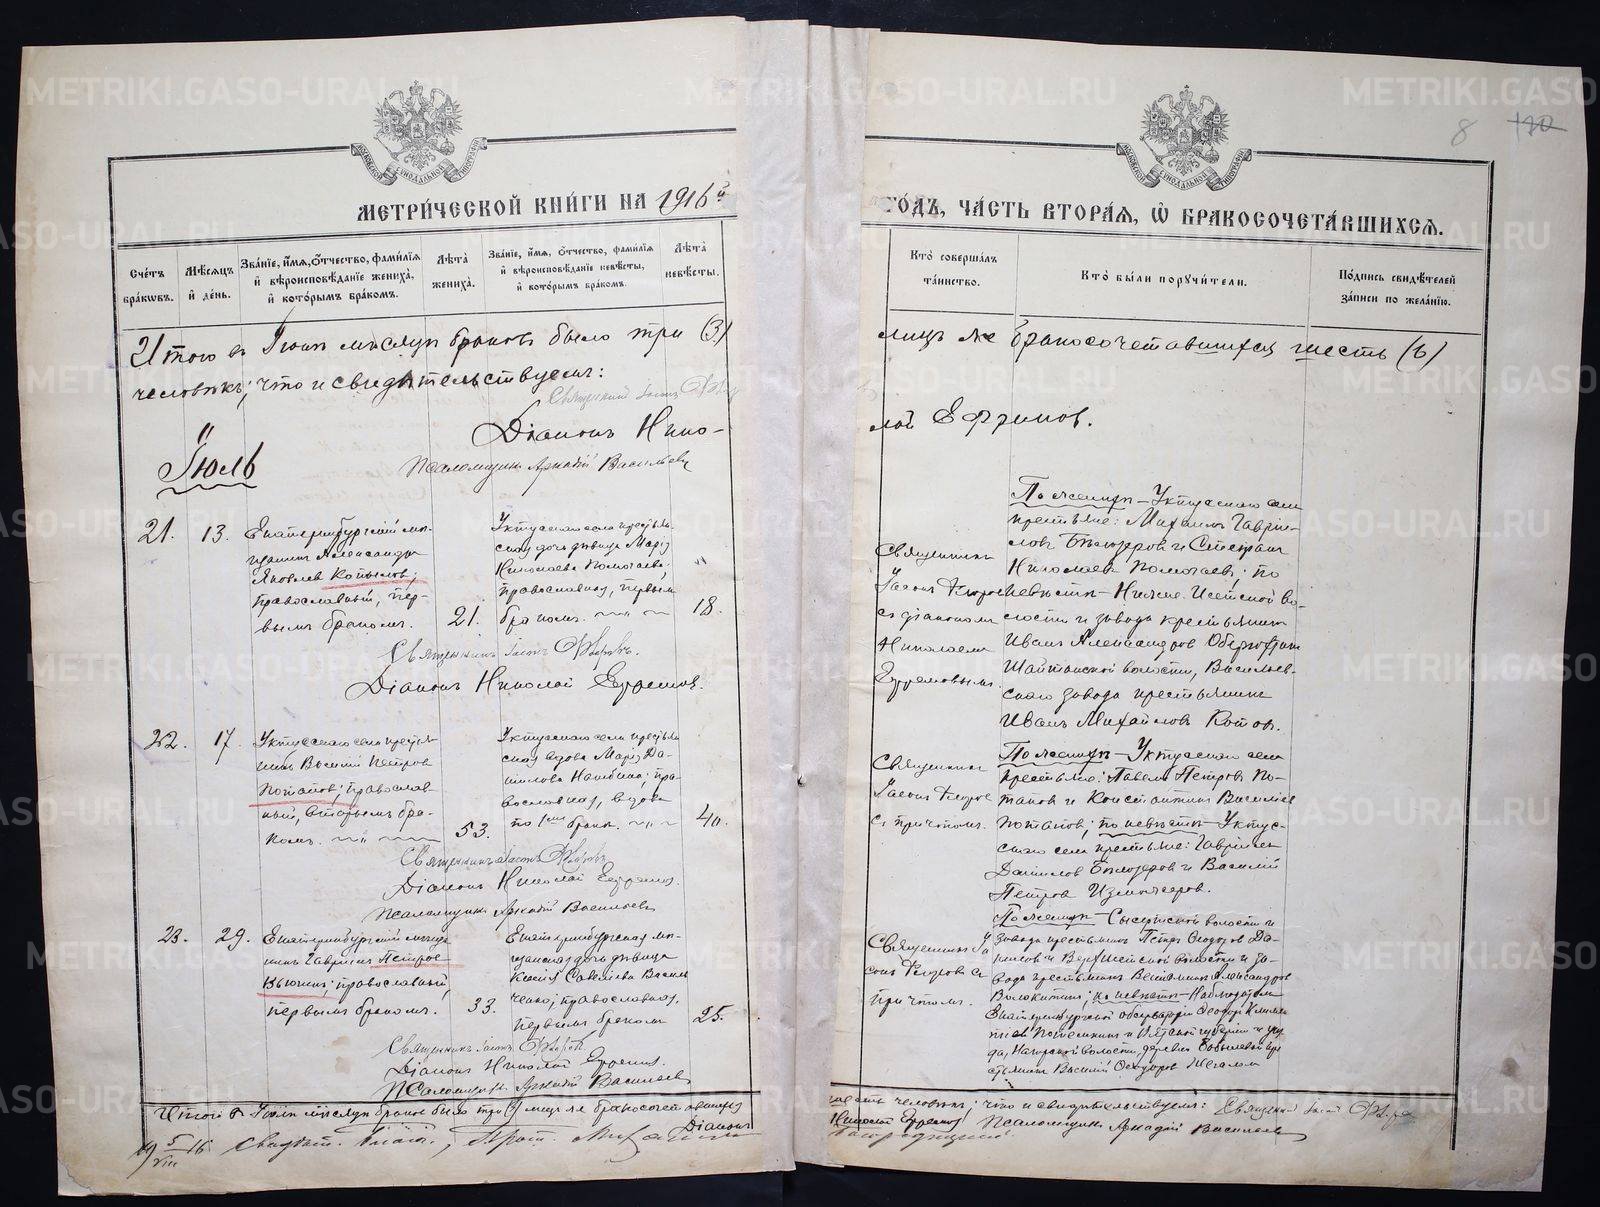 METRIKI.GASO-URAL.RU
8
МЕТРИ́ЧЕСКОЙ КНИ́ГИ НА 1916й
ГО́ДЪ, ЧА́СТЬ ВТОРА́Я, Ѡ БРАКОСОЧЕТА́ВШИХСЯ.
Сче́тъ бра́кѡвъ.
Мѣ́сяцъ и҆ де́нь.
Зва́нїе, и҆́мя, ѻ҆́тчество, фами́лїя и҆ вѣроисповѣ́данїе жениха̀, и҆ кото́рымъ бра́комъ.
Лѣ́та жениха̀.
Зва́нїе, и҆́мя, ѻ҆́тчество, фами́лїя и҆ вѣроисповѣ́данїе невѣ́сты, и҆ кото́рымъ бра́комъ.
Лѣ́та невѣ́сты.
Кто̀ соверша́лъ та́инство.
Кто̀ бы́ли поручи́тели.
По́дпись свидѣ́телей за́писи по жела́нїю.
Итого въ Іюнѣ мѣсяцѣ браковъ было три (3)
лицъ же бракосочетавшихся шесть (6)
человѣкъ; что и свидѣтельствуемъ:
Діаконъ Нико-
лай Ефремовъ.
Псаломщикъ Аркадій Васильевъ
Іюль
21.
13.
Екатеринбургскій мѣ-
щанинъ Александръ
Яковлевъ Копыловъ;
православный, пер-
вымъ бракомъ.
21.
Уктусскаго села крестьян-
ская дочь дѣвица Марія
Николаева
православная, первым
бракомъ.
18.
Священникъ
Іасонъ
съ діакономъ
Николаемъ
Ефремовымъ
По женихѣ – Уктусскаго села
крестьяне: Михаилъ Гаврии-
ловъ Бѣлозеровъ и Степанъ
Николаевъ; по
невѣстѣ – Нижне-Исетской во-
лости и завода крестьянинъ
Иванъ Александровъ
Шайтанской волости, Васильев-
скаго завода крестьянинъ
Иванъ Михайловъ Котовъ.
Священникъ Іасонъ
Діаконъ Николай Ефремовъ.
22.
17.
Уктусскаго села крестья-
нинъ Василий Петровъ
Потаповъ; православ-
ный, вторымъ бра-
комъ.
53.
Уктусскаго села крестьян-
ская вдова Марія Да-
нилова; пра-
вославная, вдова
по 1мъ бракѣ.
40.
Священникъ
Іасонъ
съ причтомъ.
По женихѣ – Уктусскаго села
крестьяне: Павелъ Петровъ По-
таповъ и Константинъ Васильевъ
Потаповъ; по невѣстѣ – Уктус-
скаго села крестьяне: Гавріилъ
Даниловъ Бѣлозеровъ и Василій
Петровъ Измоденровъ.
Священникъ Іасонъ
Діаконъ Николай Ефремовъ.
Псаломщикъ Аркадій Васильевъ
23.
29.
Екатеринбургскій мѣща-
нинъ Гавріилъ Петровъ
Вьюхинъ; православный,
первымъ бракомъ.
33.
Екатеринбургская мѣ-
щанская дочь дѣвица
Ксенія Савельева Василь-
ченко; православная,
первымъ бракомъ
25.
Священникъ Іа-
сонъ съ
причтомъ.
По женихѣ – Сысертской волости и
завода крестьянинъ Петръ Ѳеодоровъ Да-
ниловъ и Верх-Исетской волости и за-
вода крестьянинъ Веніаминъ Александровъ
Волокитинъ; по невѣстѣ – Наблюдатель
Екатеринбургской обсерваторіи Ѳеодоръ
и Вятской губерніи и уѣз-
да, Нагорской волости, деревни кре-
стьянинъ Василій Ѳеодоровъ
Священникъ Іасонъ
Діаконъ Николай Ефремовъ.
Псаломщикъ Аркадій Васильевъ
Итого въ Іюлѣ мѣсяцѣ браковъ было три (3) лицъ же бракосочетавшихся
шесть человѣкъ; что и свидѣтельствуемъ: Священникъ Іасонъ
Діаконъ
Николай Ефремовъ Псаломщикъ Аркадій Васильевъ